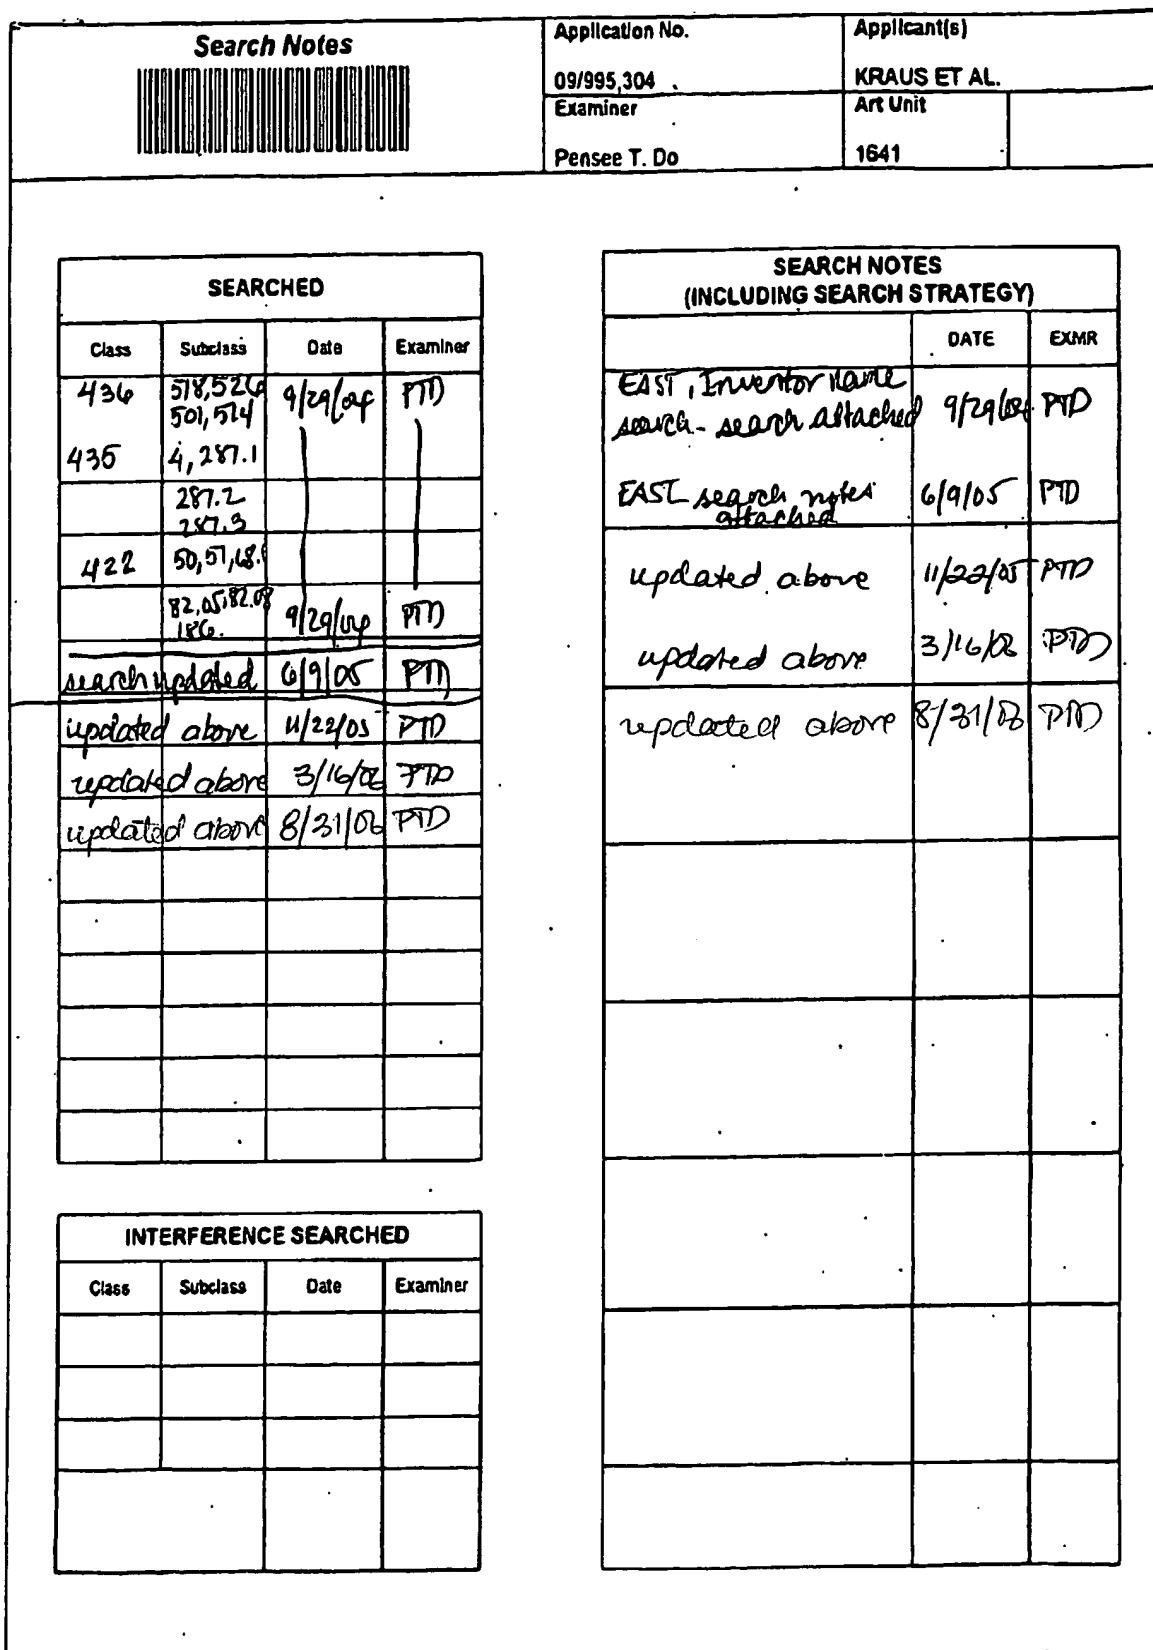 Search Notes
Application No.
09/995,304
Applicant(s)
KRAUS ET AL.
Examiner
Pensee T. Do
Art Unit
1641
SEARCHED
Class Subclass Date Examiner
436 518,526 9/29/04 PTD
501,514
435 4, 287.1
287.2
287.3
422 50,57,68.1
82.05,82.08 9/29/04 PTD
186.
search updated 6/9/05 PTD
updated above 11/22/05 PTD
updated above 3/16/06 PTD
updated above 8/31/06 PTD
INTERFERENCE SEARCHED
Class Subclass Date Examiner
SEARCH NOTES
(INCLUDING SEARCH STRATEGY)
DATE EXMR
EAST, Inventor name
search - search attached 9/29/04 PTD
EAST search notes 6/9/05 PTD
attached
updated above 11/22/05 PTD
updated above 3/16/06 PTD
updated above 8/31/06 PTD